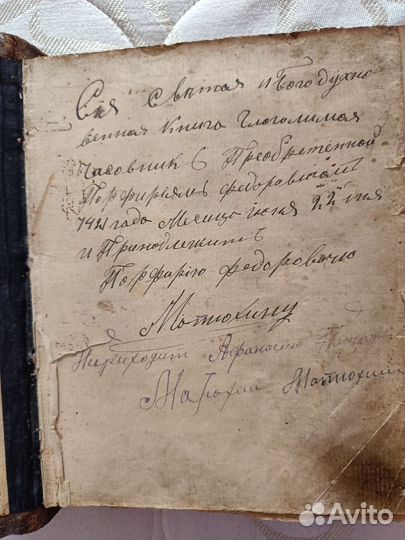 Сия Святая и Богодухно
венная книга глоголимая
Часовник Преобретенной
Порфирием федоровичам
7421 года Месица июня 22 дня
и Приноблежитъ
Порфирию федоровичю
Мотюхину
Пириходит Афонасию
Мотюхин
Avito